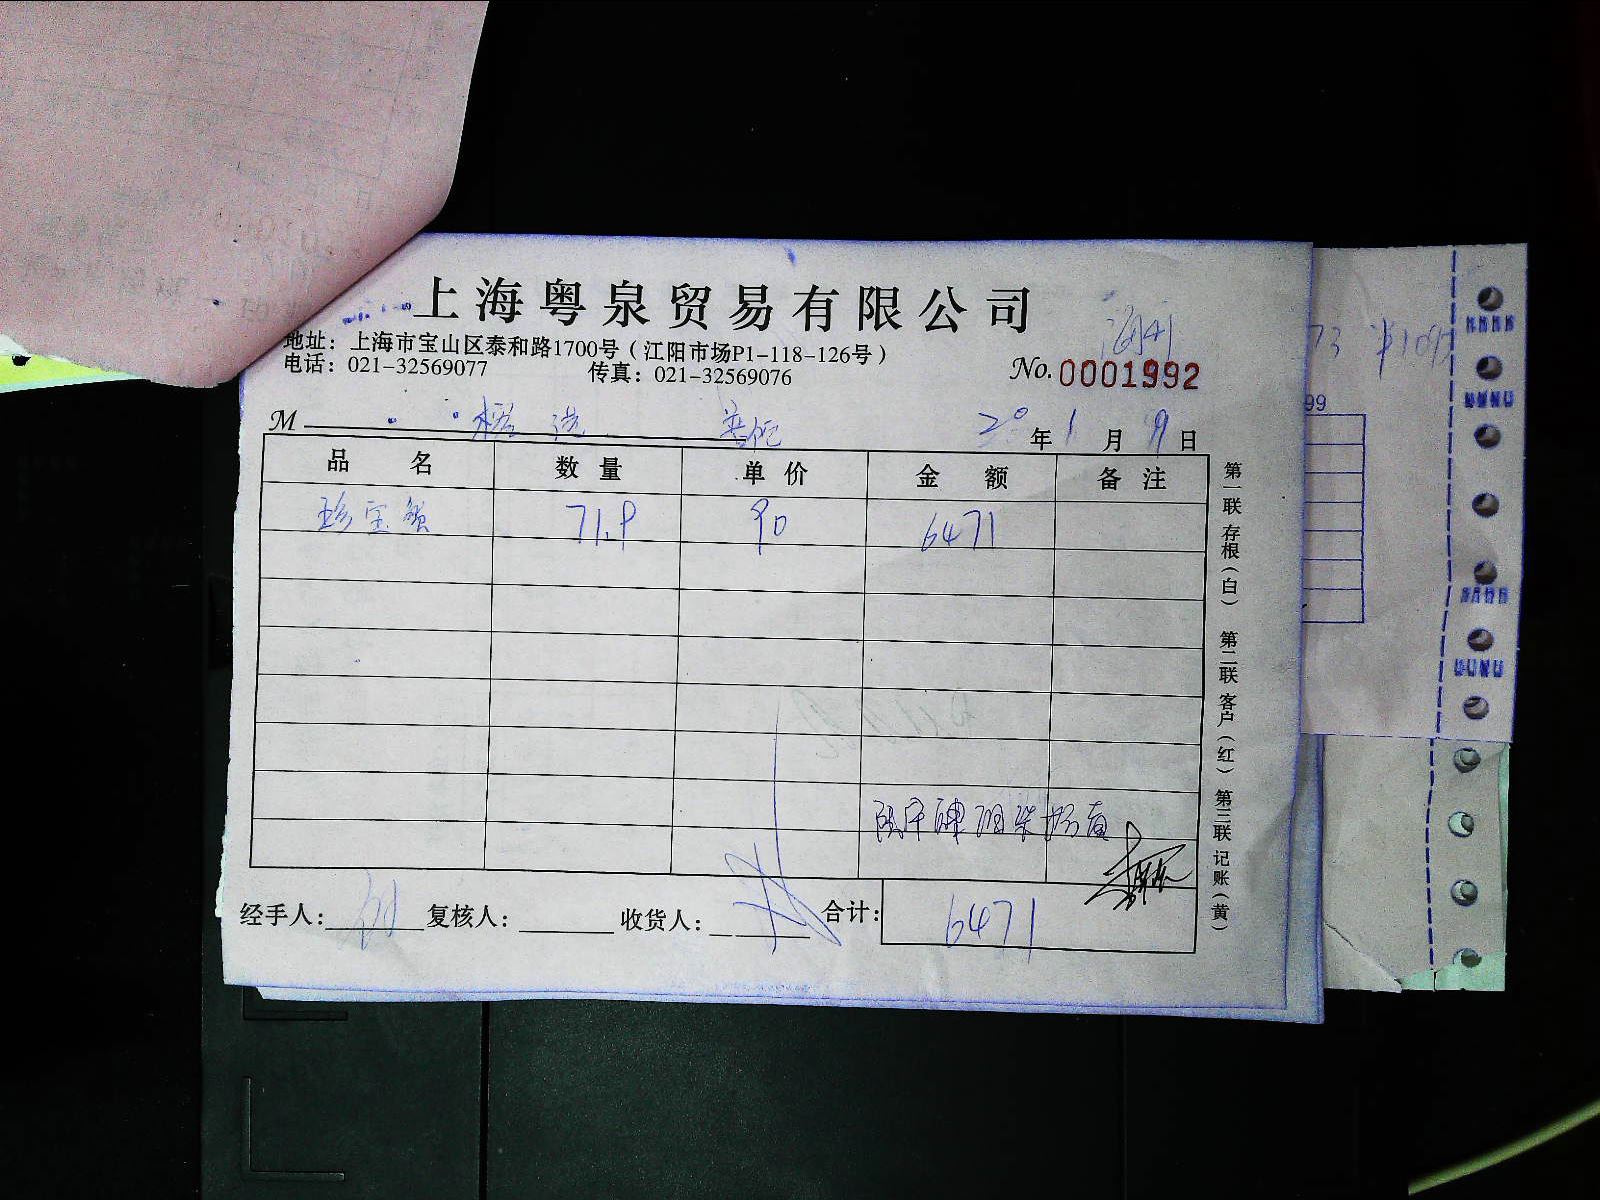 上海粤泉贸易有限公司
地址：上海市宝山区泰和路1700号（江阳市场P1-118-126号）
电话：021-32569077 传真：021-32569076
No. 0001992
M 普陀 20年1月9日
品名 数量 单价 金额 备注
珍宝蟹 71.9 90 6471
陆仟肆佰柒拾壹
经手人： 复核人： 收货人： 合计： 6471
第一联 存根（白） 第二联 客户（红） 第三联 记账（黄）
99